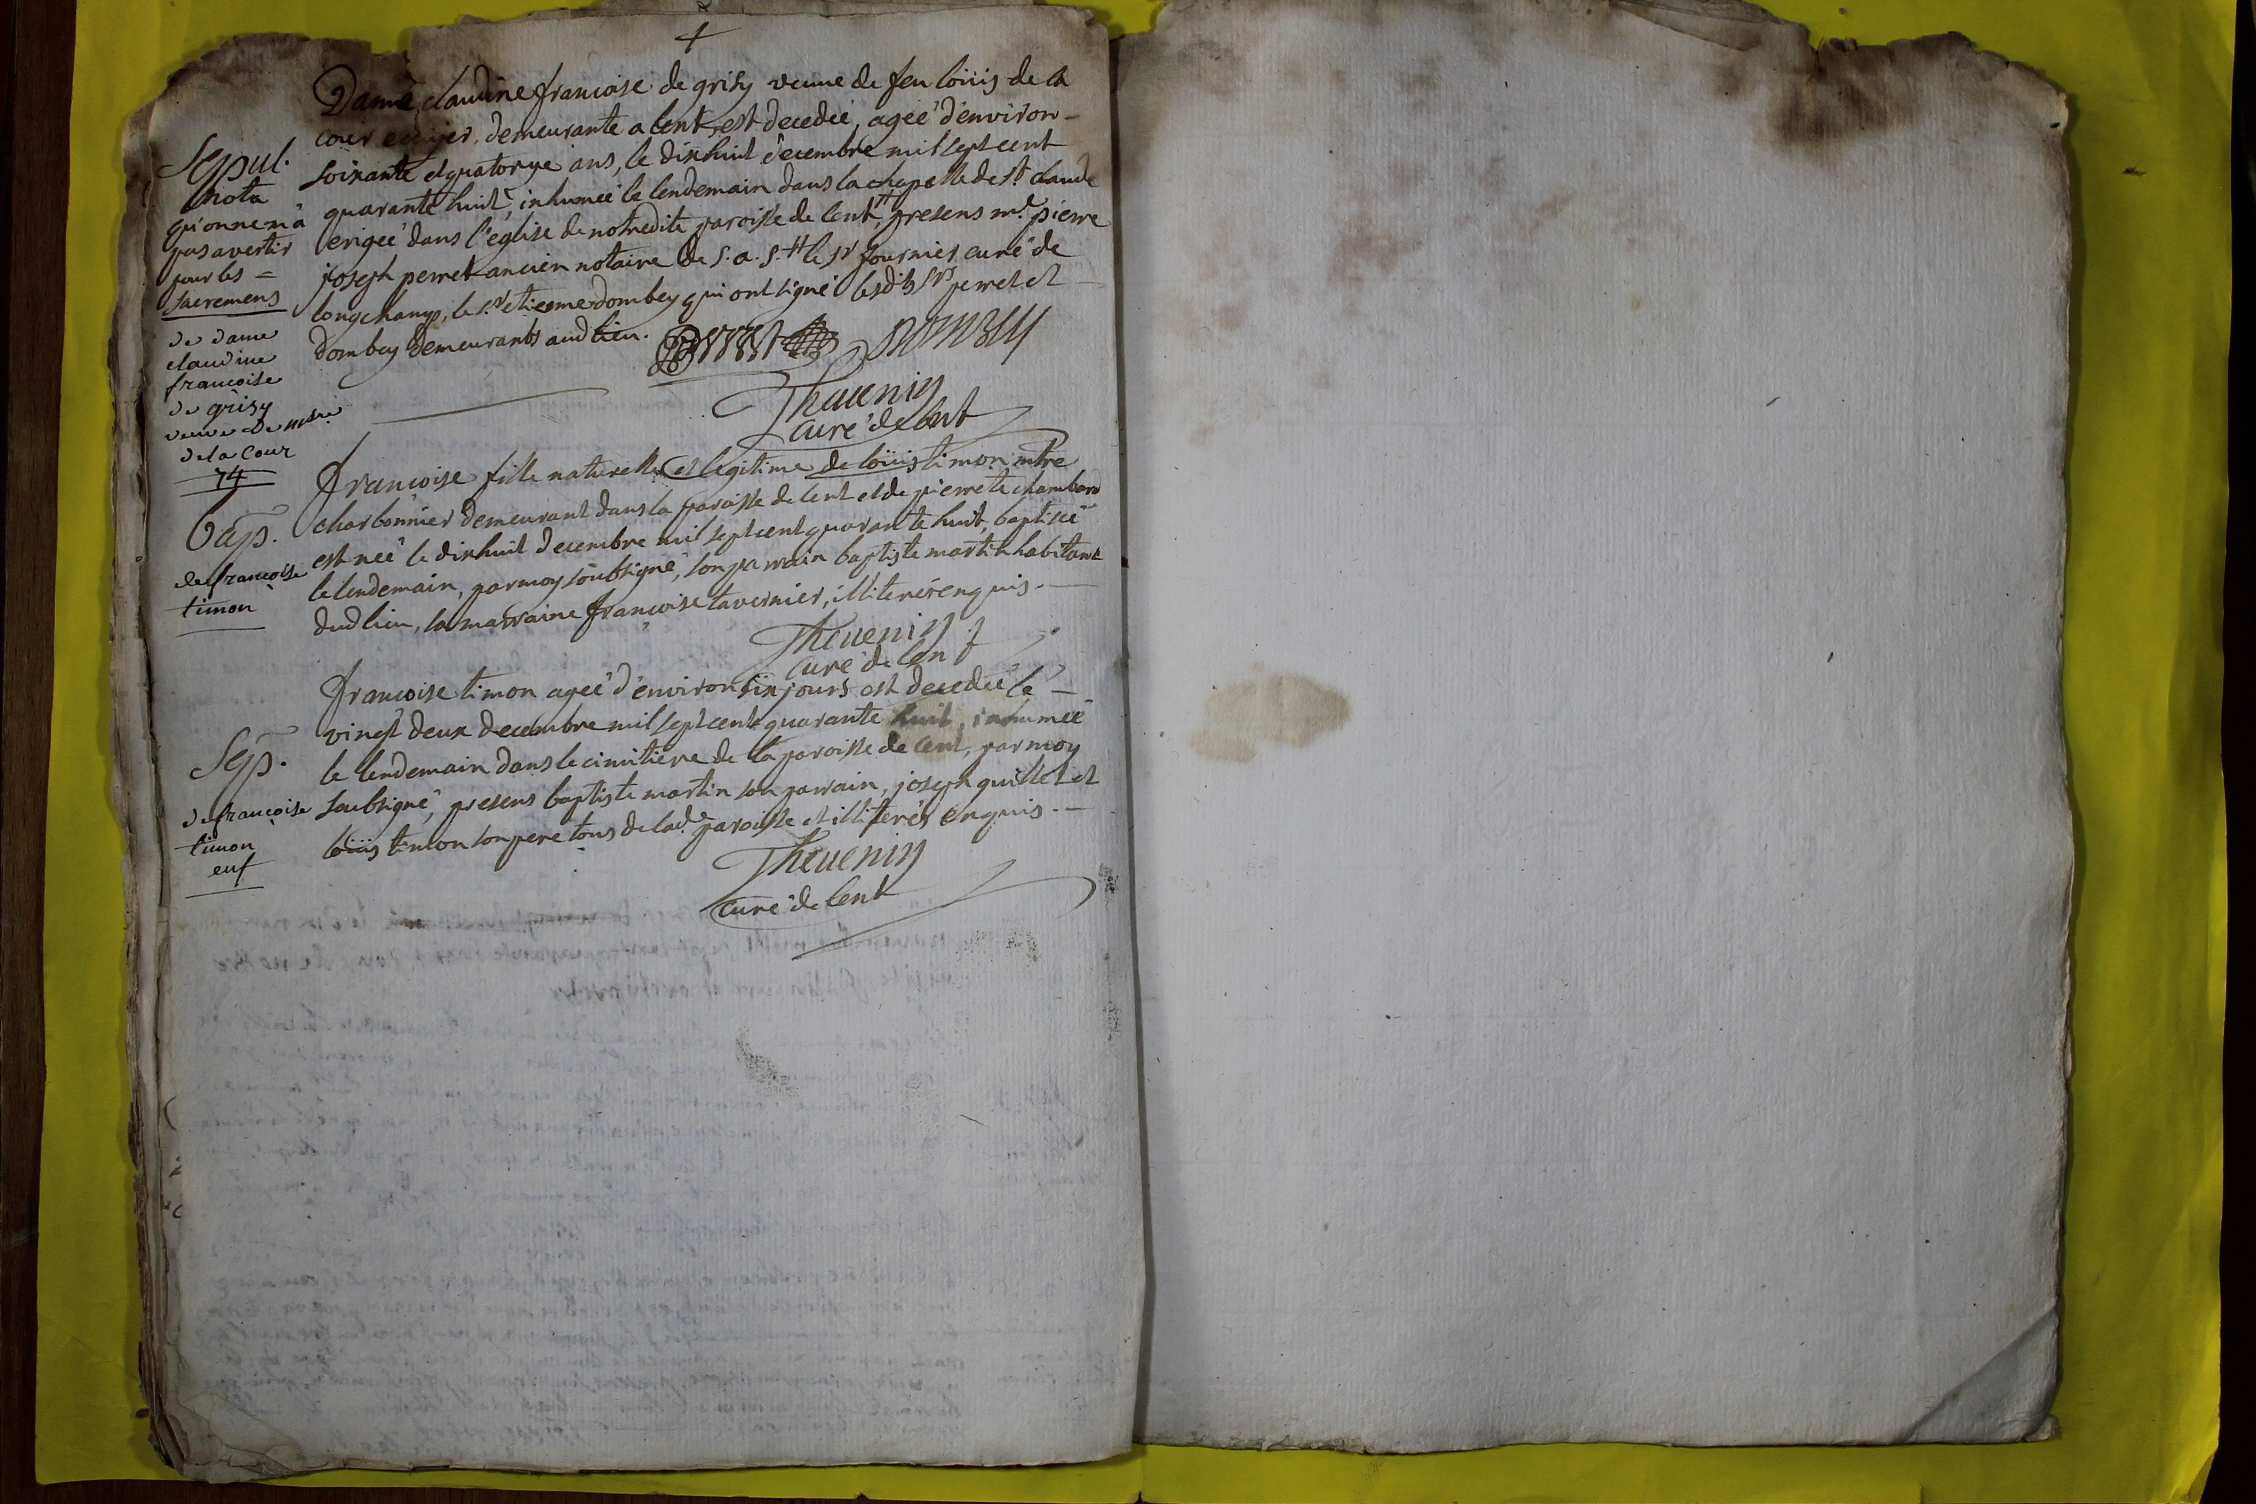 Sepul.
nota
qu'on ne m'a
pas avertir
pour les =
sacremens
de dame
claudine
francoise
de grisy
veuve de mre.
de la cour
74
Dame claudine francoise de grisy veuve de feu loüis de la
cour ecuyer, demeurante a lent, est decedeé, ageé d'environ -
soixante et quatorze ans, le dixhuit decembre mil sept cent
quarante huit, inhumeé le lendemain dans la chapelle de st. claude
erigeé dans l'eglise de notredite paroisse de lent, presens mr. pierre
joseph perret ancien notaire de s. a. s. le sr fournier curé de
longchamp, le sr. etienne dombey qui ont signé lesdits srs perret et
dombey demeurants aud lieu.
Perret Dombey
Theuenin
curé de lent
bap.
de francoise
timon
francoise fille naturelle et legitime de loüis timon mtre
charbonnier demeurant dans la paroisse de lent et de pierrete chambard
est neé le dixhuit decembre mil sept cent quarante huit, baptiseé
le lendemain, par moy soubsigné, son parrain baptiste martin habitant
dud lieu, la marraine françoise tavernier, illiterés enquis. -
Theuenin
curé de lent
Sep.
de francoise
timon
enf
francoise timon ageé d'environ six jours est decedeé le -
vingt deux decembre mil sept cent quarante huit, inhumeé
le lendemain dans le cimitiere de la paroisse de lent, par moy
soubsigné, presens baptiste martin son parrain, joseph guillet et
loüis timon son pere tous de lad. paroisse et illiterés enquis. -
Theuenin
curé de lent